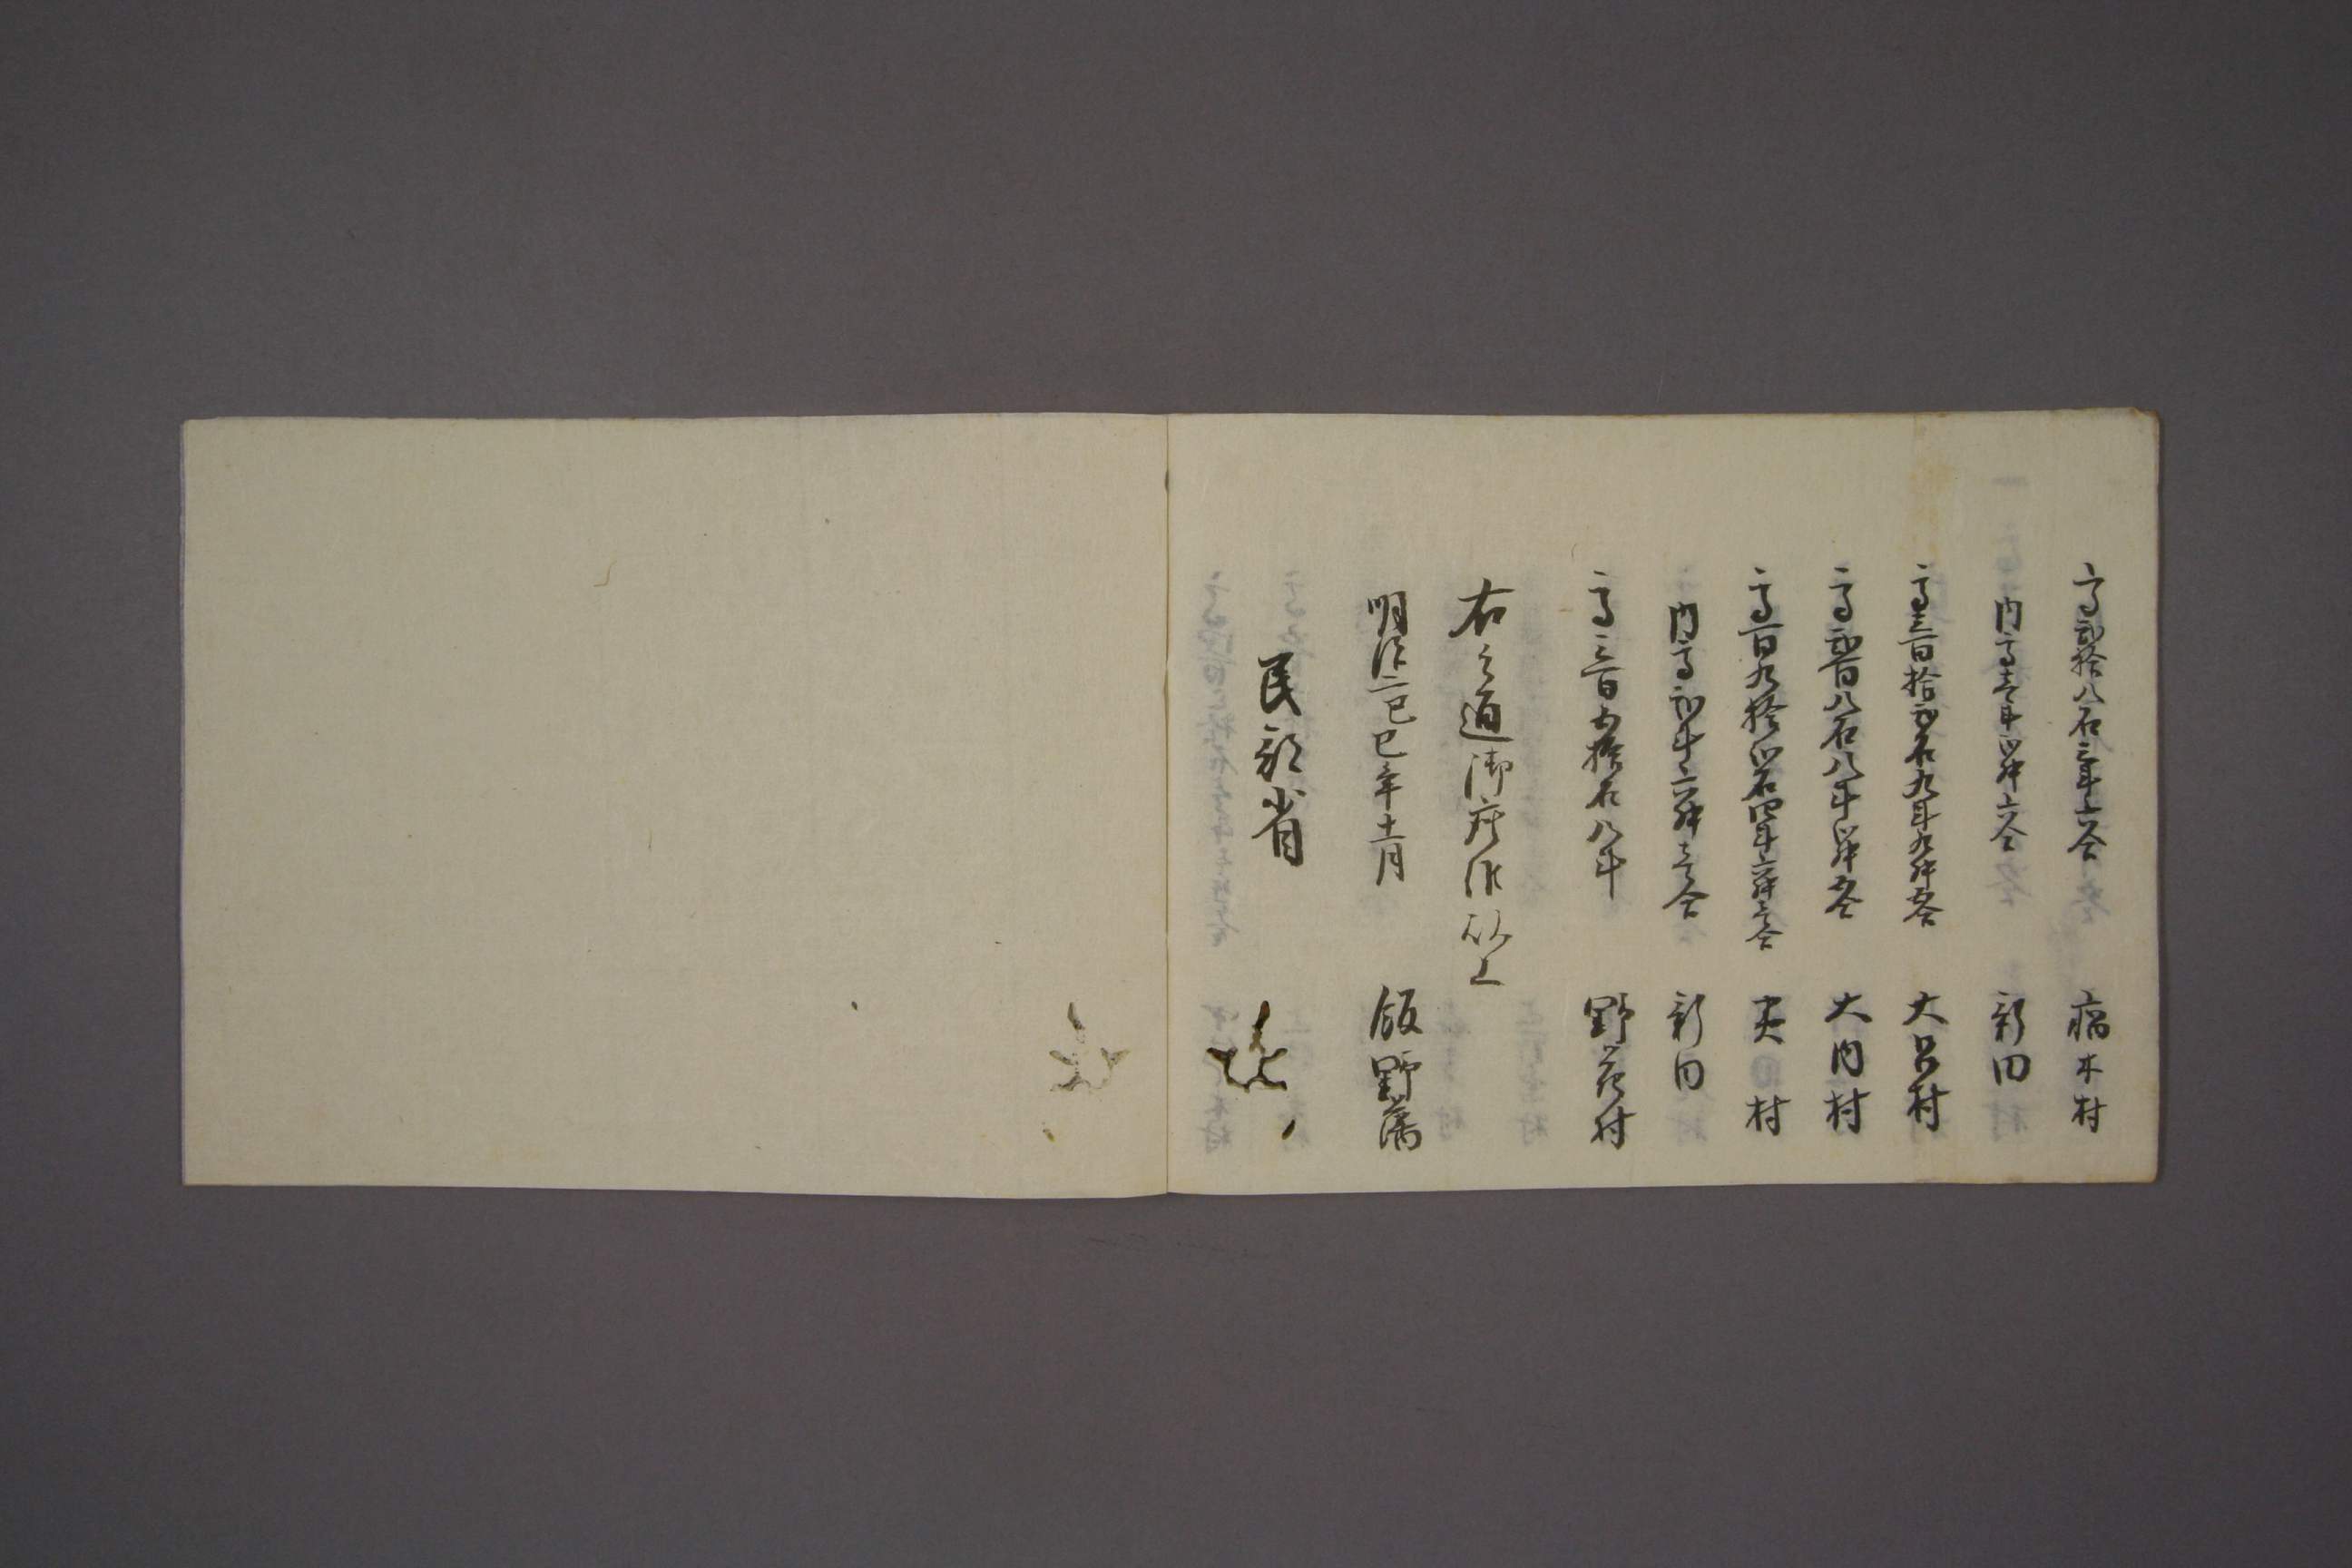 高弐拾八石三斗六合 福木村
内高壱斗四升六合 新田
高三百拾弐石九斗九升五合 大呂村
高弐百八石八斗四升五合 大内村
高百九拾四石四斗六升三合 村
内高弐斗六升壱合 新田
高三百五拾石八斗 野花村
右之通御座候以上
明治二己巳年十一月 飯野藩
民部省